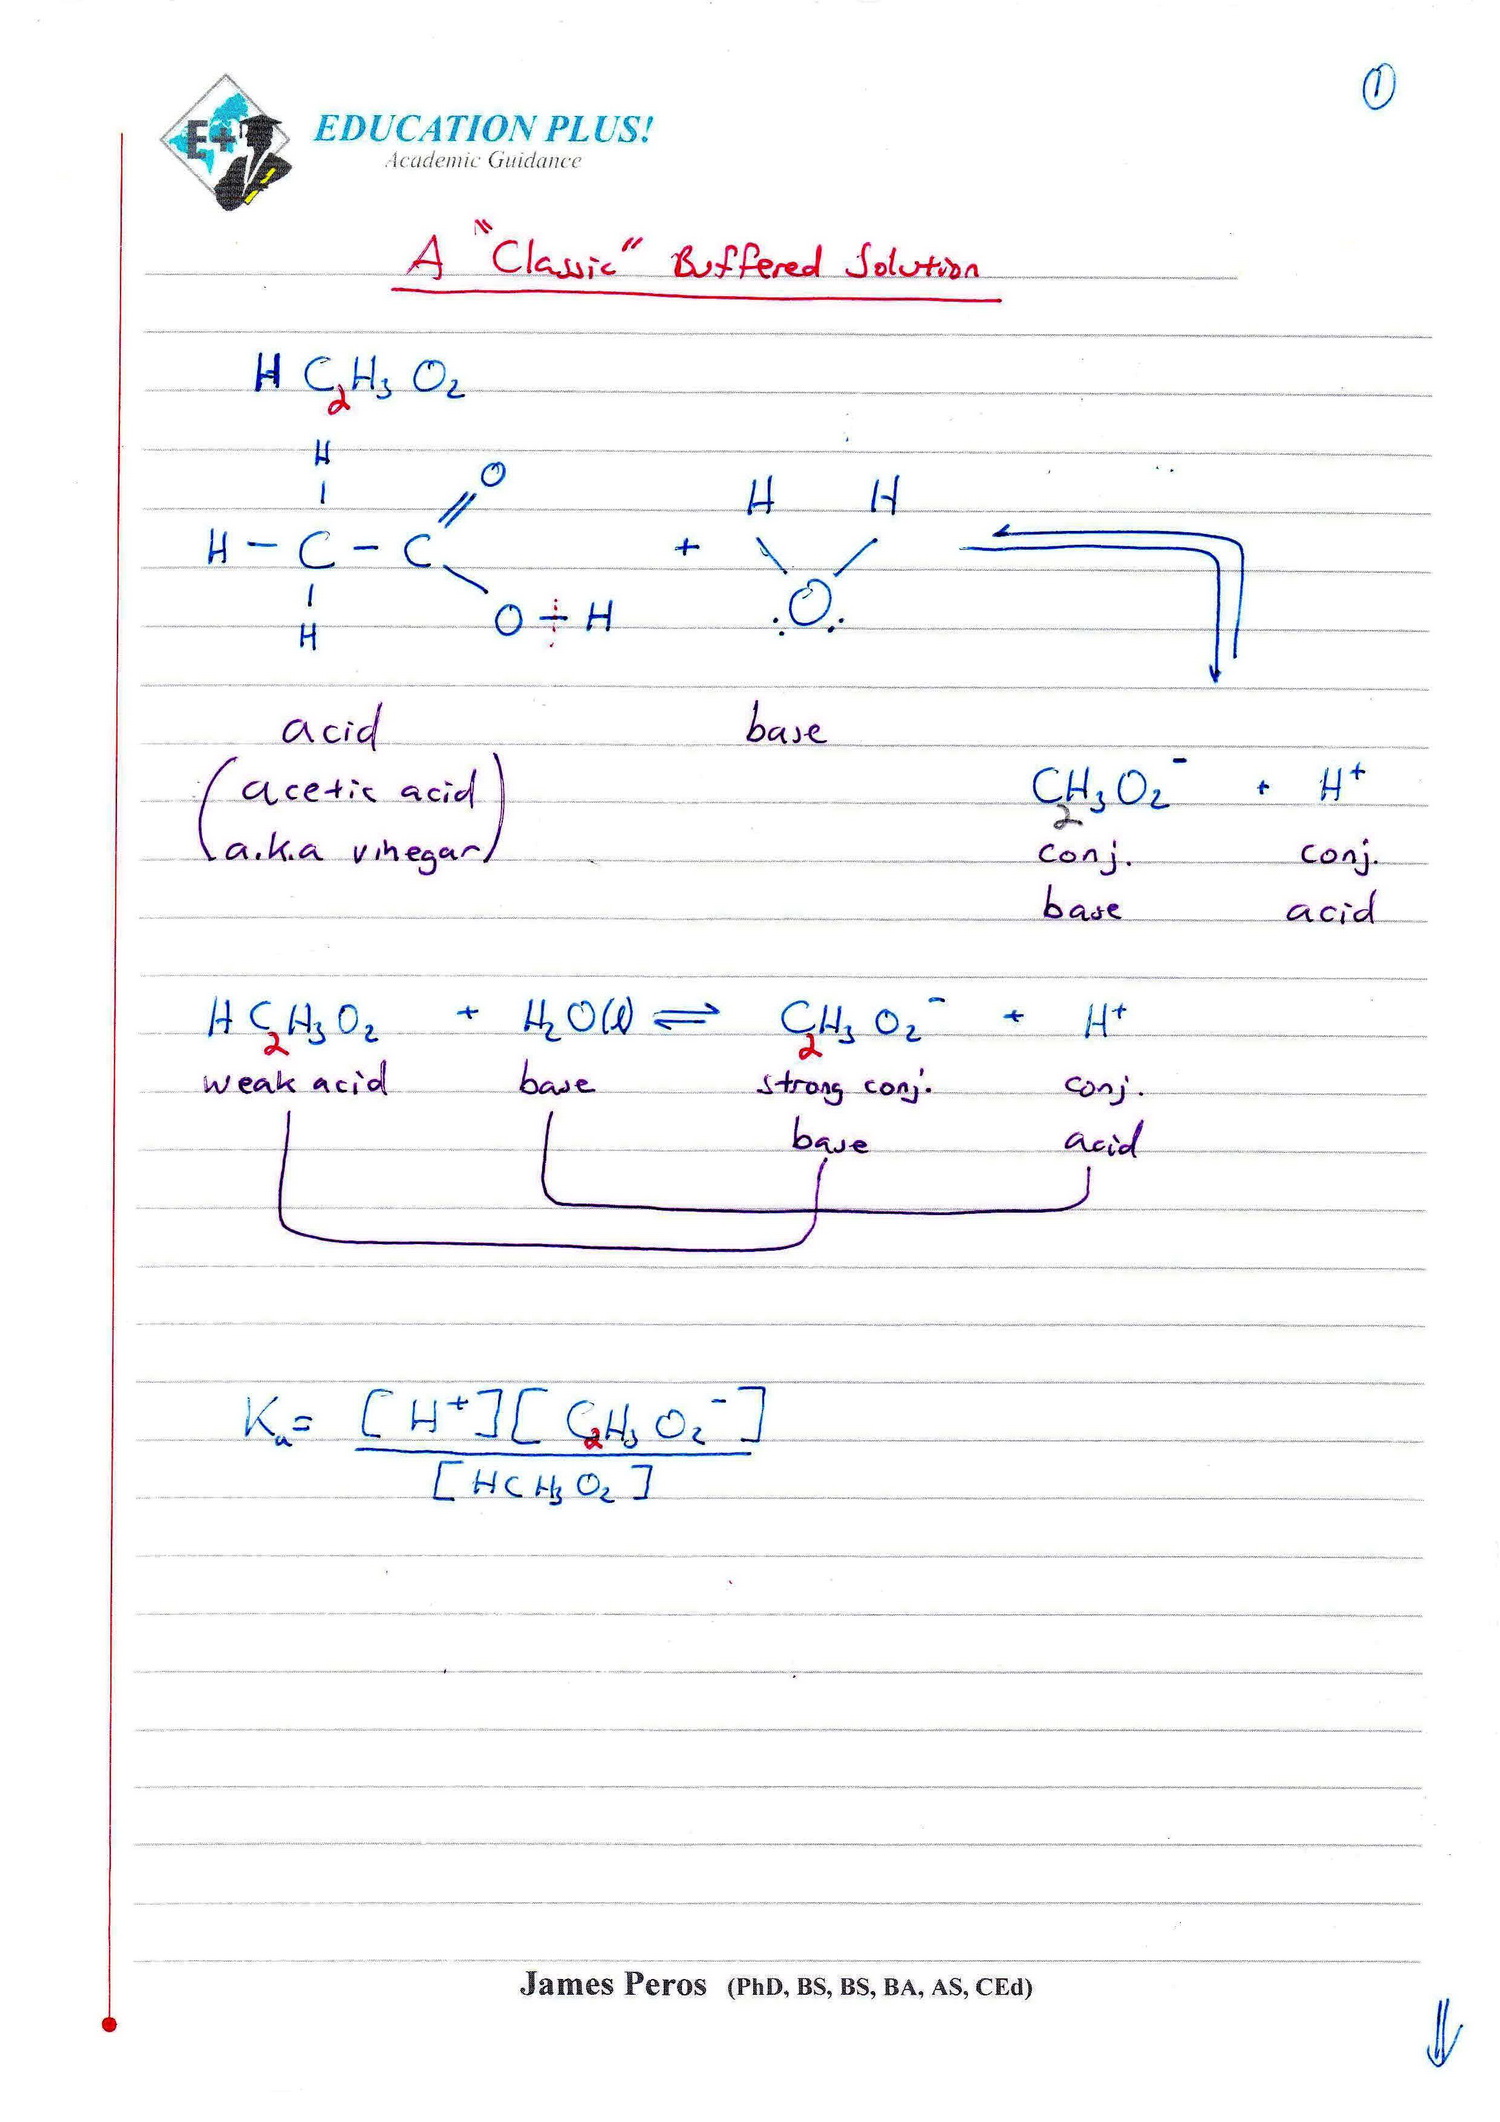 ①
E+
EDUCATION PLUS!
Academic Guidance
A "Classic" Buffered Solution
H C₂H₃ O₂
H
O
H H
H – C – C + ⇌
O – H :O:
H
acid base
(acetic acid CH₃O₂⁻ + H⁺
2
a.k.a vinegar) conj. conj.
base acid
H C₂H₃O₂ + H₂O(l) ⇌ C₂H₃O₂⁻ + H⁺
weak acid base strong conj. conj.
base acid
Kₐ = [H⁺][C₂H₃O₂⁻]
[HCH₃O₂]
James Peros (PhD, BS, BS, BA, AS, CEd)